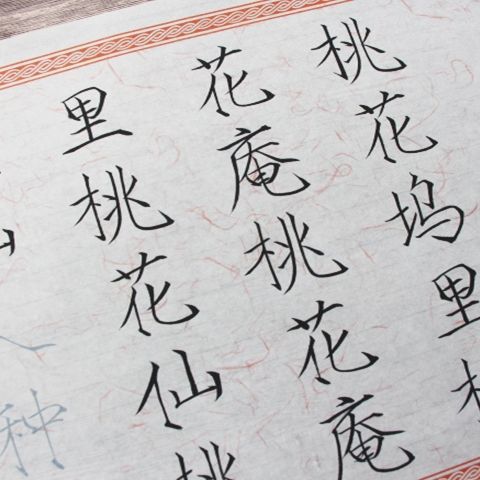 桃花坞里
花庵桃花庵
里桃花仙桃
种